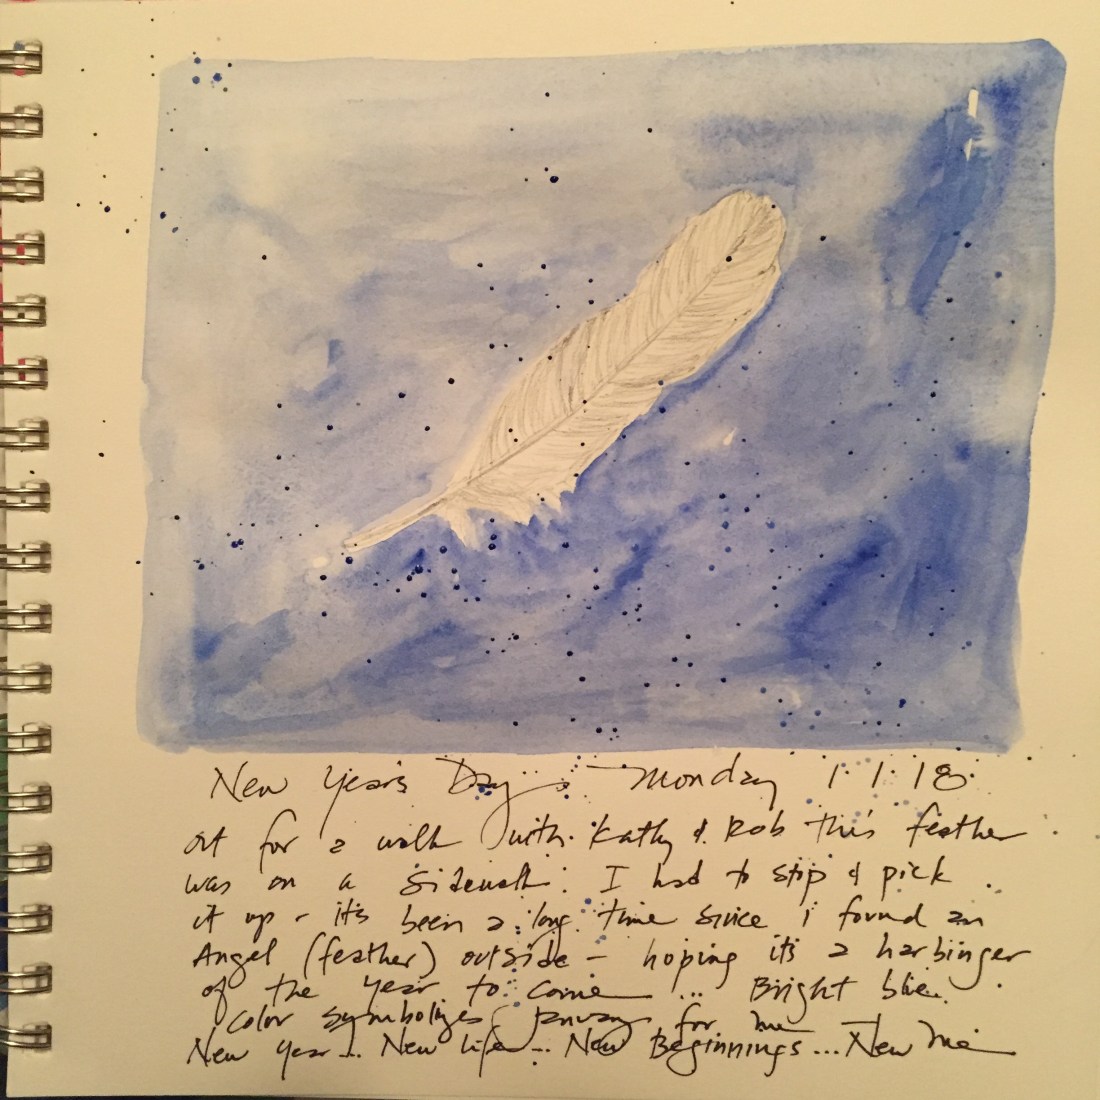 New Year's Day, Monday 1.1.18.
out for a walk with Kathy & Rob this feather
was on a sidewalk. I had to stop & pick
it up - it's been a long time since i found an
Angel (feather) outside - hoping it's a harbinger
of the year to come ... Bright blue
color symbolizes January for me
New Year... New Life... New Beginnings... New Me